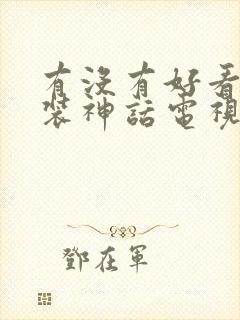 有沒有好看
裝神話電視
鄧在軍